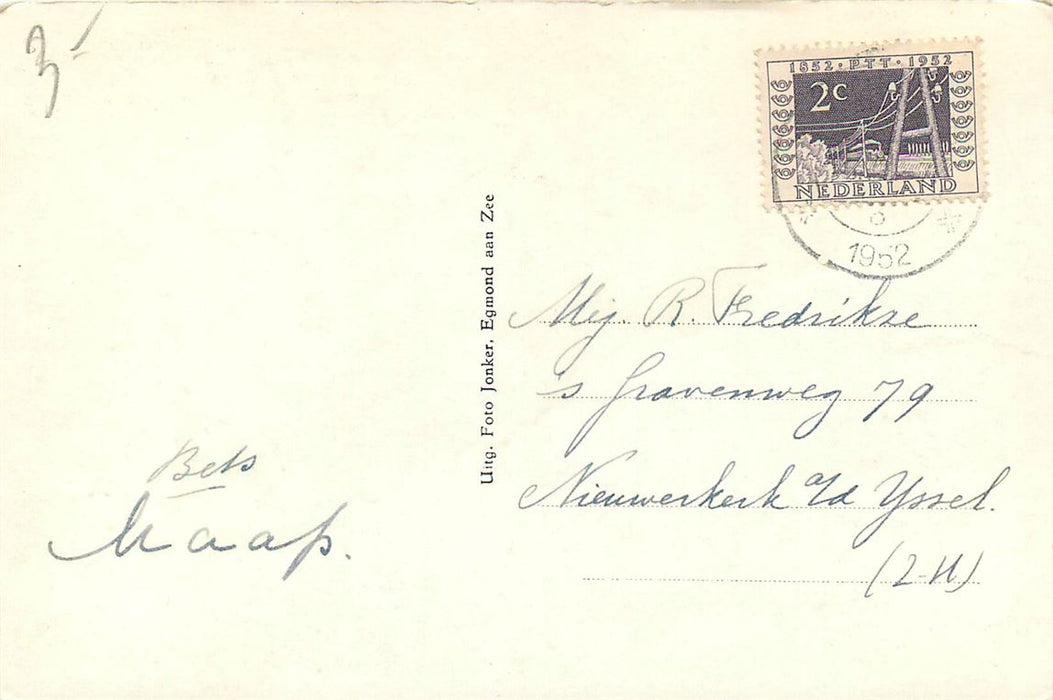 3,-
1852 · PTT · 1952
2c
NEDERLAND
8
1952
Uitg. Foto Jonker, Egmond aan Zee
Mej. R. Fredrikse
's Gravenweg 79
Nieuwerkerk a/d Yssel.
(Z-H)
Bets